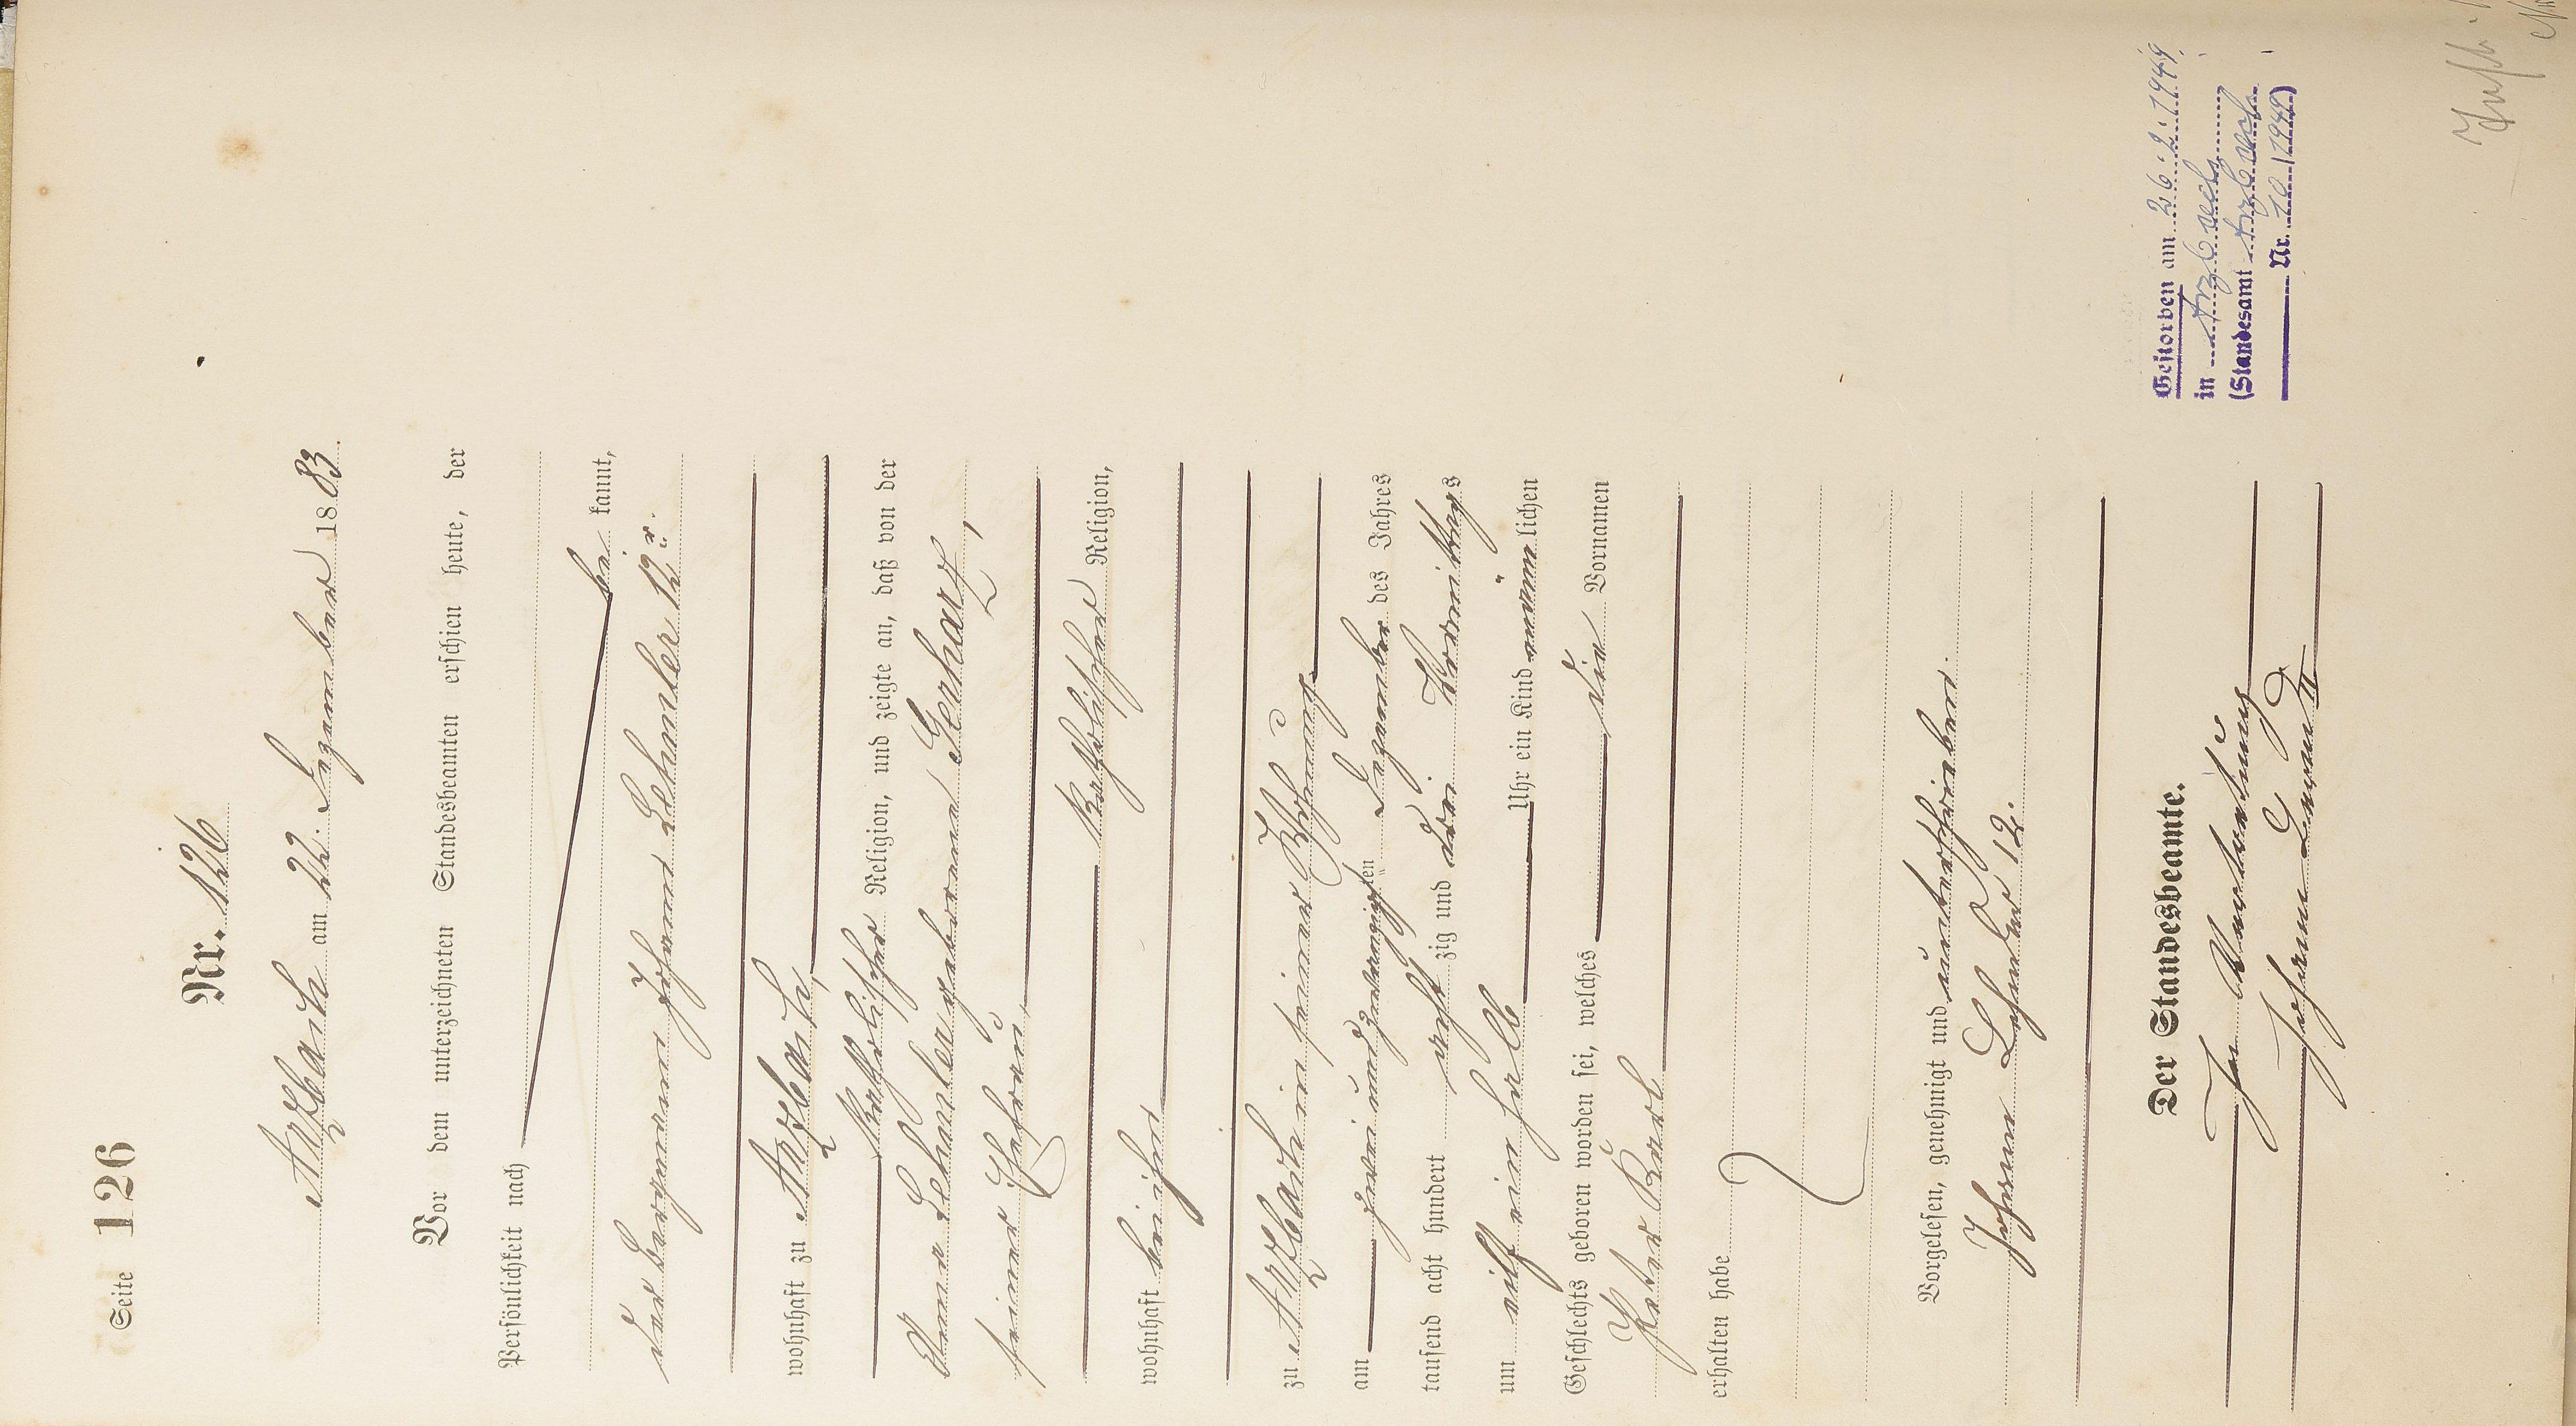 Seite 126
Nr. 126
Arzbach am 22. Dezember 1883.
Vor dem unterzeichneten Standesbeamten erschien heute, der
Persönlichkeit nach
be kannt,
der Bergmann Johann Lehmler 12r.
wohnhaft zu Arzbach,
katholischer Religion, und zeigte an, daß von der
Anna Lehmler geborene Gerharz,
seiner Ehefrau,
katholischer Religion,
wohnhaft bei ihm
zu Arzbach in seiner Wohnung
am zwei und zwanzigsten Dezember des Jahres
tausend acht hundert acht zig und drei Vormittags
um elf ein halb Uhr ein Kind männlichen
Geschlechts geboren worden sei, welches die Vornamen
Peter Karl
erhalten habe
Vorgelesen, genehmigt und unterschrieben.
Johann Lehmler 12.
Der Standesbeamte.
In Vertretung
Johann
Gestorben am 26.2.1949
in Arzbach
(Standesamt Arzbach
Nr. 10/1949)